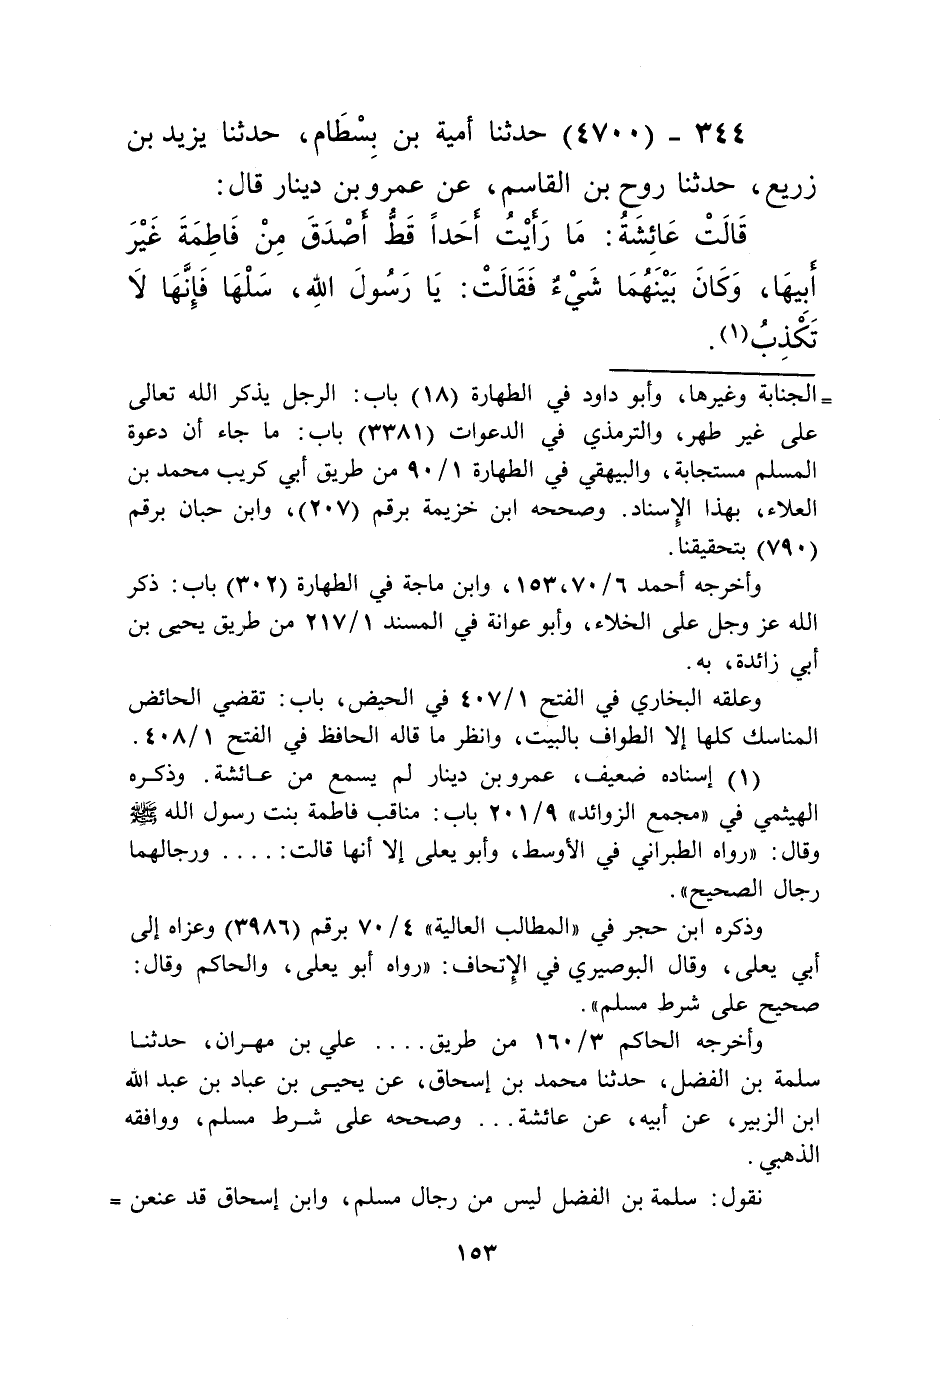 ٣٤٤ - (٤٧٠٠) حدثنا أمية بن بِسْطَام، حدثنا يزيد بن
زريع، حدثنا روح بن القاسم، عن عمرو بن دينار قال:
قَالَتْ عَائِشَةُ: مَا رَأَيْتُ أَحَداً قَطُّ أَصْدَقَ مِنْ فَاطِمَةَ غَيْرَ
أَبِيهَا، وَكَانَ بَيْنَهُمَا شَيْءٌ فَقَالَتْ: يَا رَسُولَ اللهِ، سَلْهَا فَإِنَّهَا لَا
تَكْذِبُ(١).
= الجنابة وغيرها، وأبو داود في الطهارة (١٨) باب: الرجل يذكر الله تعالى
على غير طهر، والترمذي في الدعوات (٣٣٨١) باب: ما جاء أن دعوة
المسلم مستجابة، والبيهقي في الطهارة ٩٠/١ من طريق أبي كريب محمد بن
العلاء، بهذا الإسناد. وصححه ابن خزيمة برقم (٢٠٧)، وابن حبان برقم
(٧٩٠) بتحقيقنا.
وأخرجه أحمد ٦/ ٧٠،١٥٣، وابن ماجة في الطهارة (٣٠٢) باب: ذكر
الله عز وجل على الخلاء، وأبو عوانة في المسند ٢١٧/١ من طريق يحيى بن
أبي زائدة، به.
وعلقه البخاري في الفتح ٤٠٧/١ في الحيض، باب: تقضي الحائض
المناسك كلها إلا الطواف بالبيت، وانظر ما قاله الحافظ في الفتح ٤٠٨/١.
(١) إسناده ضعيف، عمرو بن دينار لم يسمع من عائشة. وذكره
الهيثمي في «مجمع الزوائد» ٢٠١/٩ باب: مناقب فاطمة بنت رسول الله ﷺ
وقال: «رواه الطبراني في الأوسط، وأبو يعلى إلا أنها قالت: .... ورجالهما
رجال الصحيح».
وذكره ابن حجر في «المطالب العالية» ٧٠/٤ برقم (٣٩٨٦) وعزاه إلى
أبي يعلى، وقال البوصيري في الإتحاف: «رواه أبو يعلى، والحاكم وقال:
صحيح على شرط مسلم».
وأخرجه الحاكم ١٦٠/٣ من طريق.... علي بن مهران، حدثنا
سلمة بن الفضل، حدثنا محمد بن إسحاق، عن يحيى بن عباد بن عبد الله
ابن الزبير، عن أبيه، عن عائشة... وصححه على شرط مسلم، ووافقه
الذهبي.
نقول: سلمة بن الفضل ليس من رجال مسلم، وابن إسحاق قد عنعن =
١٥٣